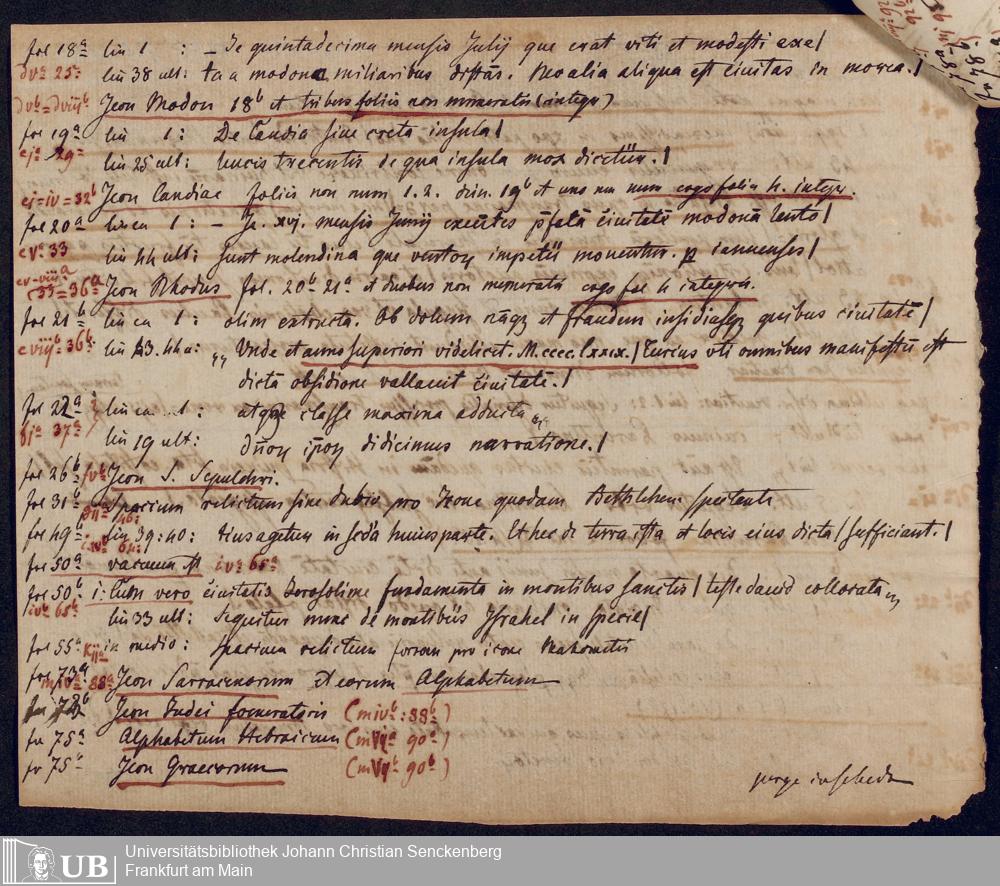 fol 18ª lin 1 : – Ie quintadecima mensis Julij que erat viti et modesti exe/
dvª 25ª lin 38 ult: ta a modona miliaribus distās. Realia aliqua est civitas in morea./
dvᵇ=dviijᵇ Icon Modon 18ᵇ et tribus foliis non numeratis (integr)
fol 19ª lin 1: De Candia sive creta insula/
ejª 29ª lin 25 ult: lucis trecentis de qua insula mox dicetur./
ej=iv=32ᵇ Icon Candiae foliis non num. 1. 2. 19ᵇ et uno non num ergo folia 4. integr.
fol 20ª linea 1 : – Ie. xvj. mensis Junij exeūtes p̄fatā civitatē modonā lento/
evª 33 lin 44 ult: sunt molendina que ventorꝝ impetu moventur. ianuenses/
ev-viijª (33=36ª Icon Rhodus fol. 20ᵇ 21ª et duobus non numeratis ergo fol 4 integris.
fol 21ᵇ linea 1: olim extructa. Ob dolum nāqꝫ et fraudem insidiasqꝫ quibus civitatē/
eviijᵇ 36ᵇ lin 43. 44a: „ Unde et anno superiori videlicet. M.cccc.lxxix./ Turcus uti omnibus manifestū est
dictā obsidione vallavit civitatē./
fol 22ª linea 1 : atqꝫ classe maxima adducta
fjª 37ª lin 19 ult: dn̄orꝝ ip̄orꝝ didicimus narratione./
fol 26ᵇ fvᵇ Icon S. Sepulchri.
fol 31ᵇ Spacium relictum sine dubio pro Icone quodam Bethlehem spectante
fol 49ᵇ lin 39:40: eius agetur in secda huius parte. Et hec de terra ista et locis eius dicta/ sufficiant./
fol 50ª vacuum est ivª 65ª
fol 50ᵇ 1: Cum vero civitatis Iorosolime fundamenta in montibus sanctis/ teste david collocata
ivᵇ 65ᵇ lin 33 ult: Sequitur nunc de montibus Israhel in specie/
fol 55ª kijª in medio: spacium relictum forsan pro icone Mahometis
fol 73ª mivª 88ª Icon Sarracenorum et eorum Alphabetum
73ᵇ Icon Iudei foeneratoris (mivᵇ: 88ᵇ)
fol 75ª Alphabetum Hebraicum (mvjª 90ª)
fol 75ᵇ Icon Graecorum (mvjᵇ 90ᵇ)
perge in scheda
UB Universitätsbibliothek Johann Christian Senckenberg
Frankfurt am Main